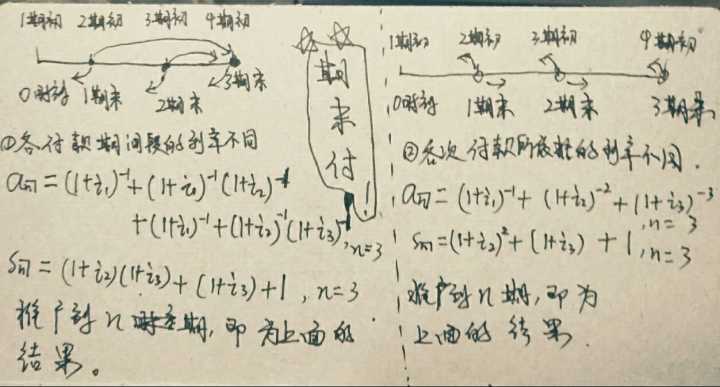 1期初 2期初 3期初 4期初
0时刻 1期末 2期末 3期末
①各付款期间段的利率不同
a_n̅| = (1+i₁)⁻¹+(1+i₁)⁻¹(1+i₂)⁻¹
+(1+i₁)⁻¹+(1+i₂)⁻¹(1+i₃)⁻¹, n=3
s_n̅| = (1+i₂)(1+i₃)+(1+i₃)+1, n=3
推广到n期,即为上面的
结果。
☆☆
期末付!
1期初 2期初 3期初 4期初
0时刻 1期末 2期末 3期末
②各次付款所依据的利率不同.
a_n̅| = (1+i₁)⁻¹+(1+i₂)⁻²+(1+i₃)⁻³
, n=3
s_n̅| = (1+i₂)²+(1+i₃)+1, n=3
推广到n期,即为
上面的结果.